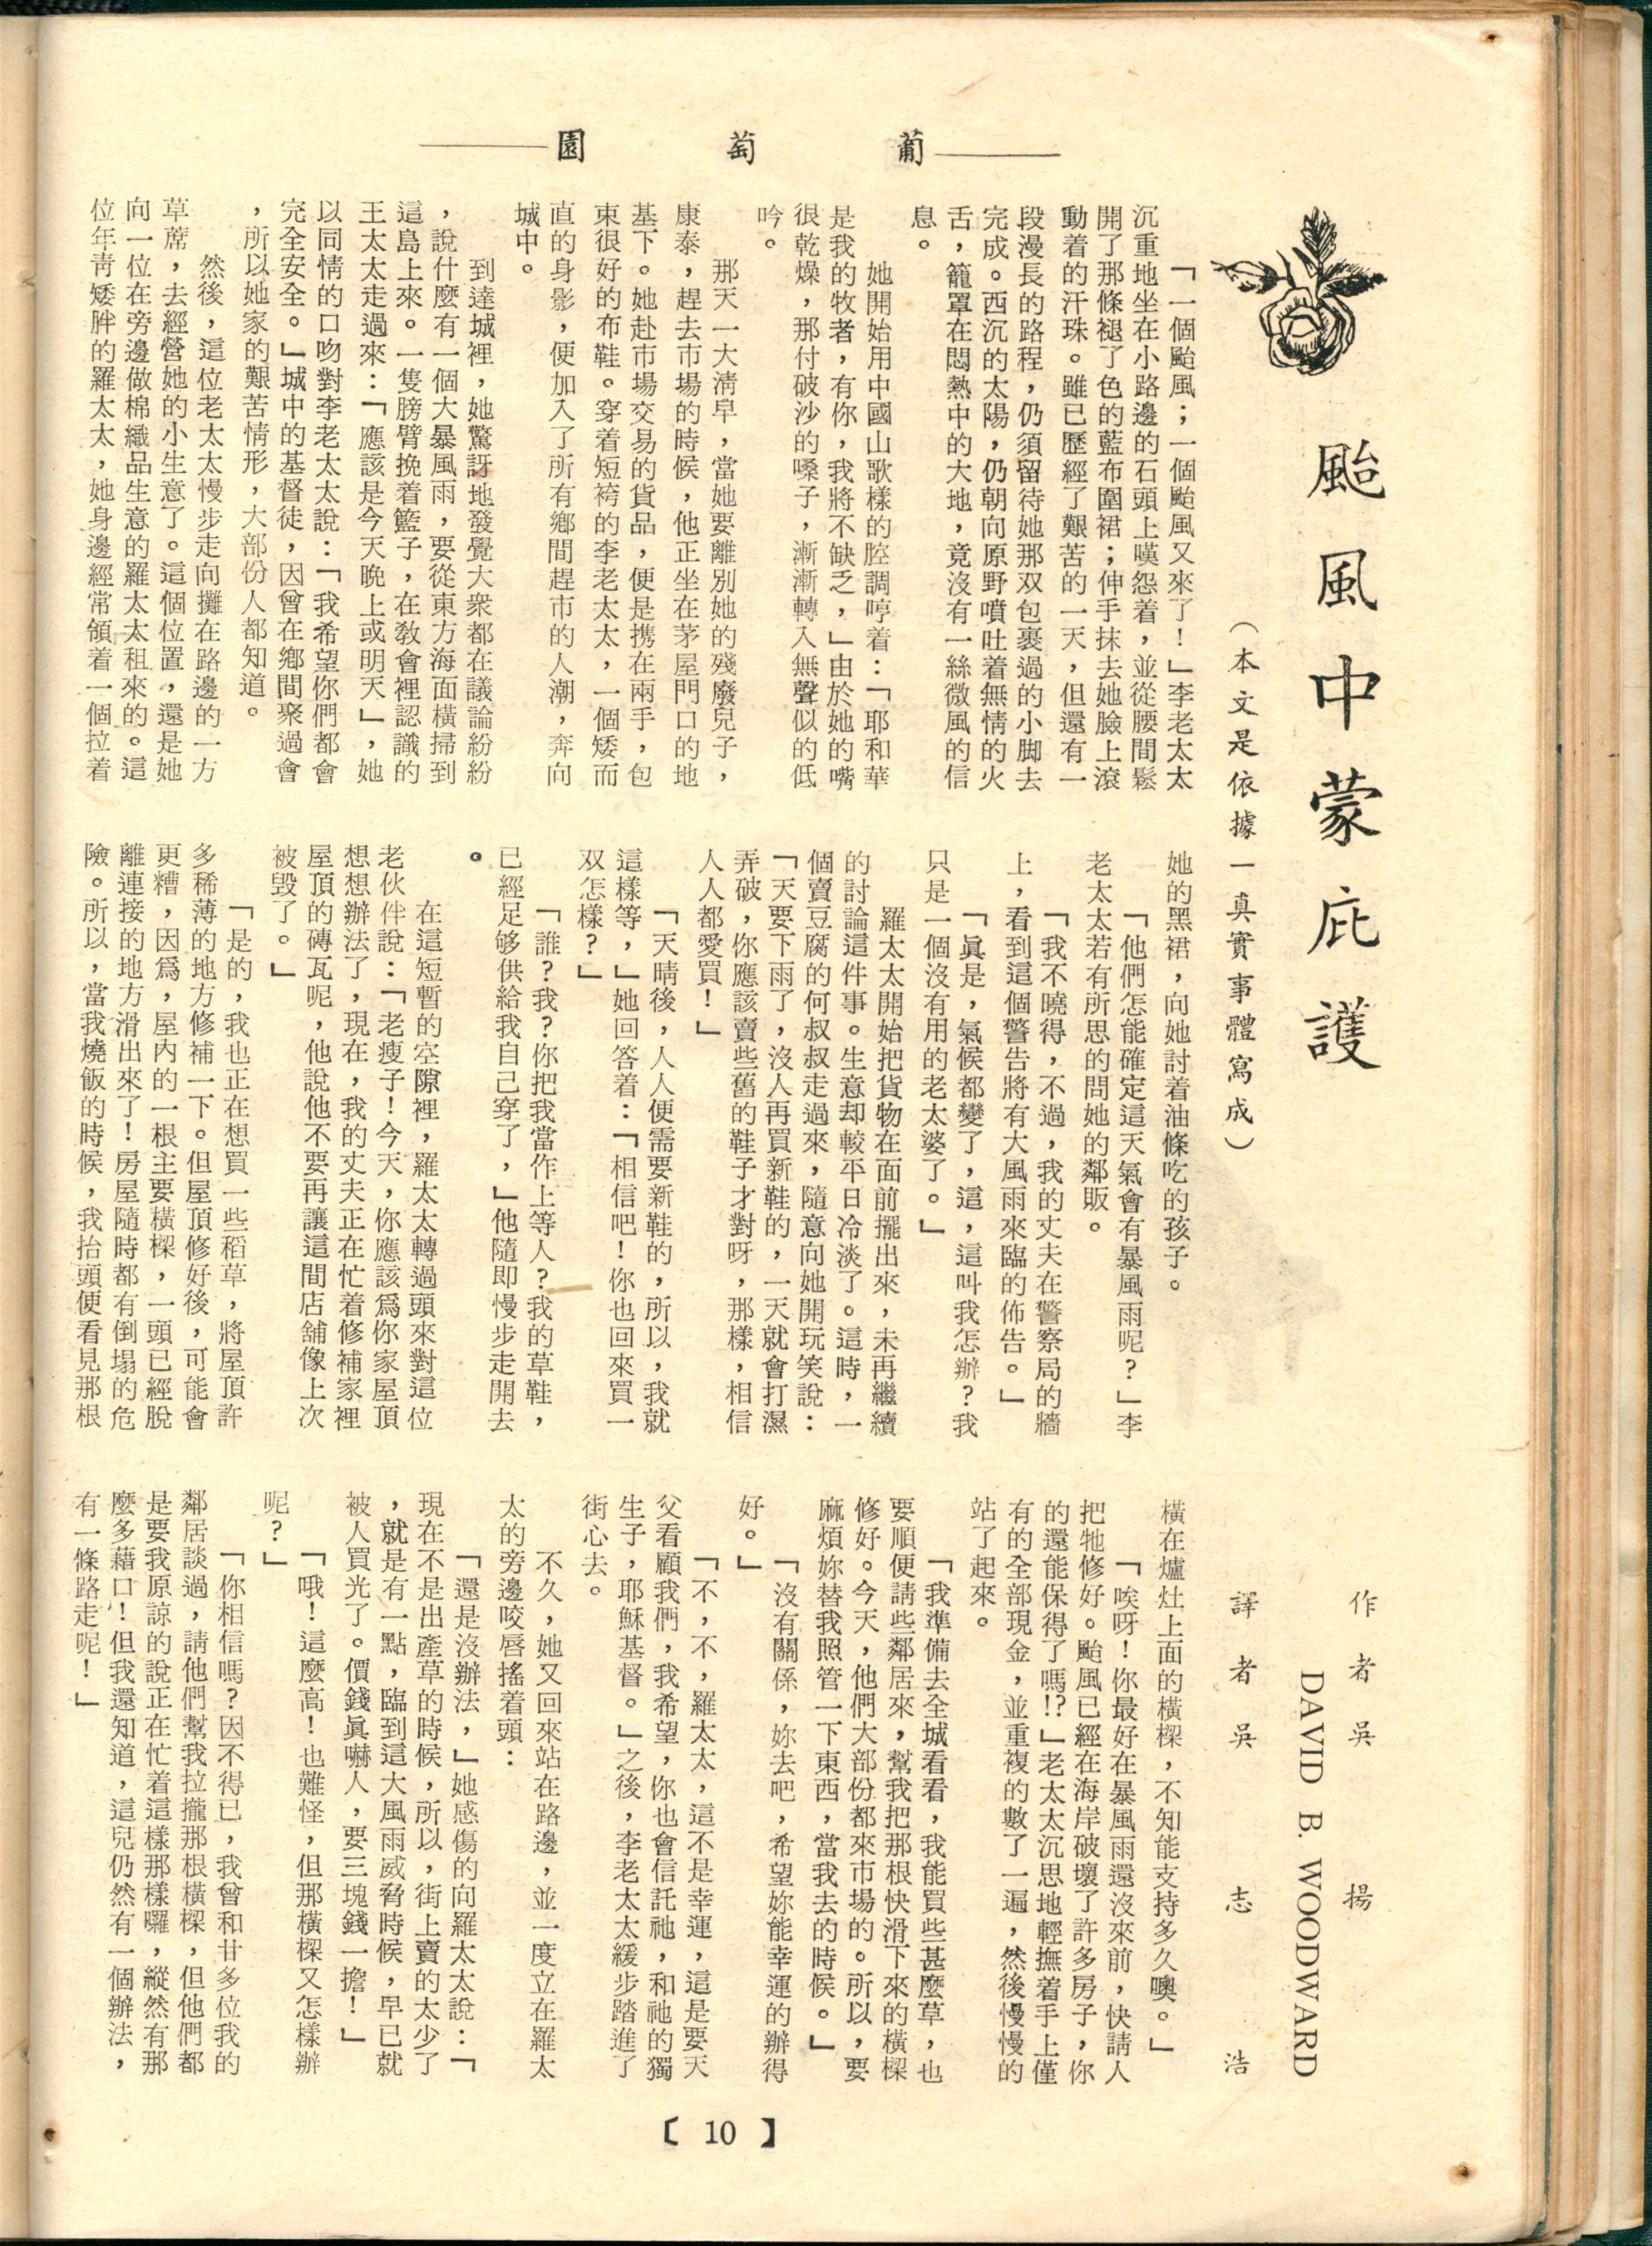 葡萄園
颱風中蒙庇護
（本文是依據一真實事體寫成）
作者吳　揚
DAVID B. WOODWARD
譯者吳志浩
「一個颱風；一個颱風又來了！」李老太太
沉重地坐在小路邊的石頭上嘆怨着，並從腰間鬆
開了那條褪了色的藍布圍裙；伸手抹去她臉上滾
動着的汗珠。雖已歷經了艱苦的一天，但還有一
段漫長的路程，仍須留待她那双包裹過的小脚去
完成。西沉的太陽，仍朝向原野噴吐着無情的火
舌，籠罩在悶熱中的大地，竟沒有一絲微風的信
息。
她開始用中國山歌樣的腔調哼着：「耶和華
是我的牧者，有你，我將不缺乏，」由於她的嘴
很乾燥，那付破沙的嗓子，漸漸轉入無聲似的低
吟。
那天一大淸早，當她要離別她的殘廢兒子，
康泰，趕去市場的時候，他正坐在茅屋門口的地
基下。她赴市場交易的貨品，便是携在兩手，包
束很好的布鞋。穿着短袴的李老太太，一個矮而
直的身影，便加入了所有鄉間趕市的人潮，奔向
城中。
到達城裡，她驚訝地發覺大衆都在議論紛紛
，說什麼有一個大暴風雨，要從東方海面橫掃到
這島上來。一隻膀臂挽着籃子，在敎會裡認識的
王太太走過來：「應該是今天晚上或明天」，她
以同情的口吻對李老太太說：「我希望你們都會
完全安全。」城中的基督徒，因曾在鄉間聚過會
，所以她家的艱苦情形，大部份人都知道。
然後，這位老太太慢步走向攤在路邊的一方
草蓆，去經營她的小生意了。這個位置，還是她
向一位在旁邊做棉織品生意的羅太太租來的。這
位年靑矮胖的羅太太，她身邊經常領着一個拉着
她的黑裙，向她討着油條吃的孩子。
「他們怎能確定這天氣會有暴風雨呢？」李
老太太若有所思的問她的鄰販。
「我不曉得，不過，我的丈夫在警察局的牆
上，看到這個警告將有大風雨來臨的佈告。」
「眞是，氣候都變了，這，這叫我怎辦？我
只是一個沒有用的老太婆了。」
羅太太開始把貨物在面前擺出來，未再繼續
的討論這件事。生意却較平日冷淡了。這時，一
個賣豆腐的何叔叔走過來，隨意向她開玩笑說：
「天要下雨了，沒人再買新鞋的，一天就會打濕
弄破，你應該賣些舊的鞋子才對呀，那樣，相信
人人都愛買！」
「天晴後，人人便需要新鞋的，所以，我就
這樣等，」她回答着：「相信吧！你也回來買一
双怎樣？」
「誰？我？你把我當作上等人？我的草鞋，
已經足够供給我自己穿了，」他隨即慢步走開去
。
在這短暫的空隙裡，羅太太轉過頭來對這位
老伙伴說：「老瘦子！今天，你應該爲你家屋頂
想想辦法了，現在，我的丈夫正在忙着修補家裡
屋頂的磚瓦呢，他說他不要再讓這間店舖像上次
被毀了。」
「是的，我也正在想買一些稻草，將屋頂許
多稀薄的地方修補一下。但屋頂修好後，可能會
更糟，因爲，屋內的一根主要橫樑，一頭已經脫
離連接的地方滑出來了！房屋隨時都有倒塌的危
險。所以，當我燒飯的時候，我抬頭便看見那根
橫在爐灶上面的橫樑，不知能支持多久噢。」
「唉呀！你最好在暴風雨還沒來前，快請人
把牠修好。颱風已經在海岸破壞了許多房子，你
的還能保得了嗎!?」老太太沉思地輕撫着手上僅
有的全部現金，並重複的數了一遍，然後慢慢的
站了起來。
「我準備去全城看看，我能買些甚麼草，也
要順便請些鄰居來，幫我把那根快滑下來的橫樑
修好。今天，他們大部份都來市場的。所以，要
麻煩妳替我照管一下東西，當我去的時候。」
「沒有關係，妳去吧，希望妳能幸運的辦得
好。」
「不，不，羅太太，這不是幸運，這是要天
父看顧我們，我希望，你也會信託祂，和祂的獨
生子，耶穌基督。」之後，李老太太緩步踏進了
街心去。
不久，她又回來站在路邊，並一度立在羅太
太的旁邊咬唇搖着頭：
「還是沒辦法，」她感傷的向羅太太說：「
現在不是出產草的時候，所以，街上賣的太少了
，就是有一點，臨到這大風雨威脅時候，早已就
被人買光了。價錢眞嚇人，要三塊錢一擔！」
「哦！這麼高！也難怪，但那橫樑又怎樣辦
呢？」
「你相信嗎？因不得已，我曾和廿多位我的
鄰居談過，請他們幫我拉攏那根橫樑，但他們都
是要我原諒的說正在忙着這樣那樣囉，縱然有那
麼多藉口！但我還知道，這兒仍然有一個辦法，
有一條路走呢！」
〔10〕